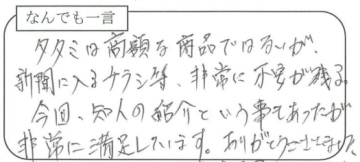 なんでも一言
タタミは高額な商品ではないが、
新聞に入るチラシ等、非常に不安が残る。
今回、知人の紹介という事であったが
非常に満足しています。ありがとうございました。